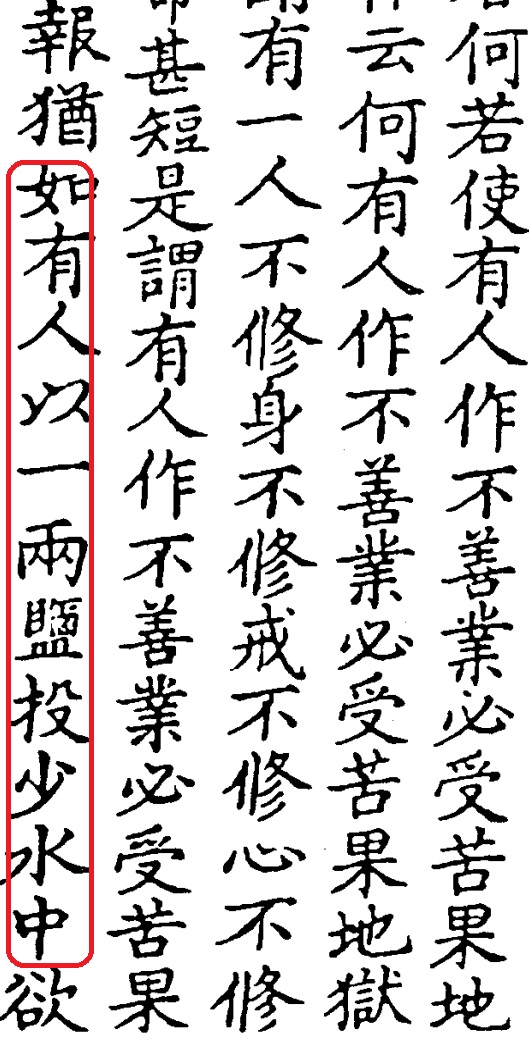 何若使有人作不善業必受苦果地
云何有人作不善業必受苦果地獄
有一人不修身不修戒不修心不修
甚短是謂有人作不善業必受苦果
報猶如有人以一兩鹽投少水中欲